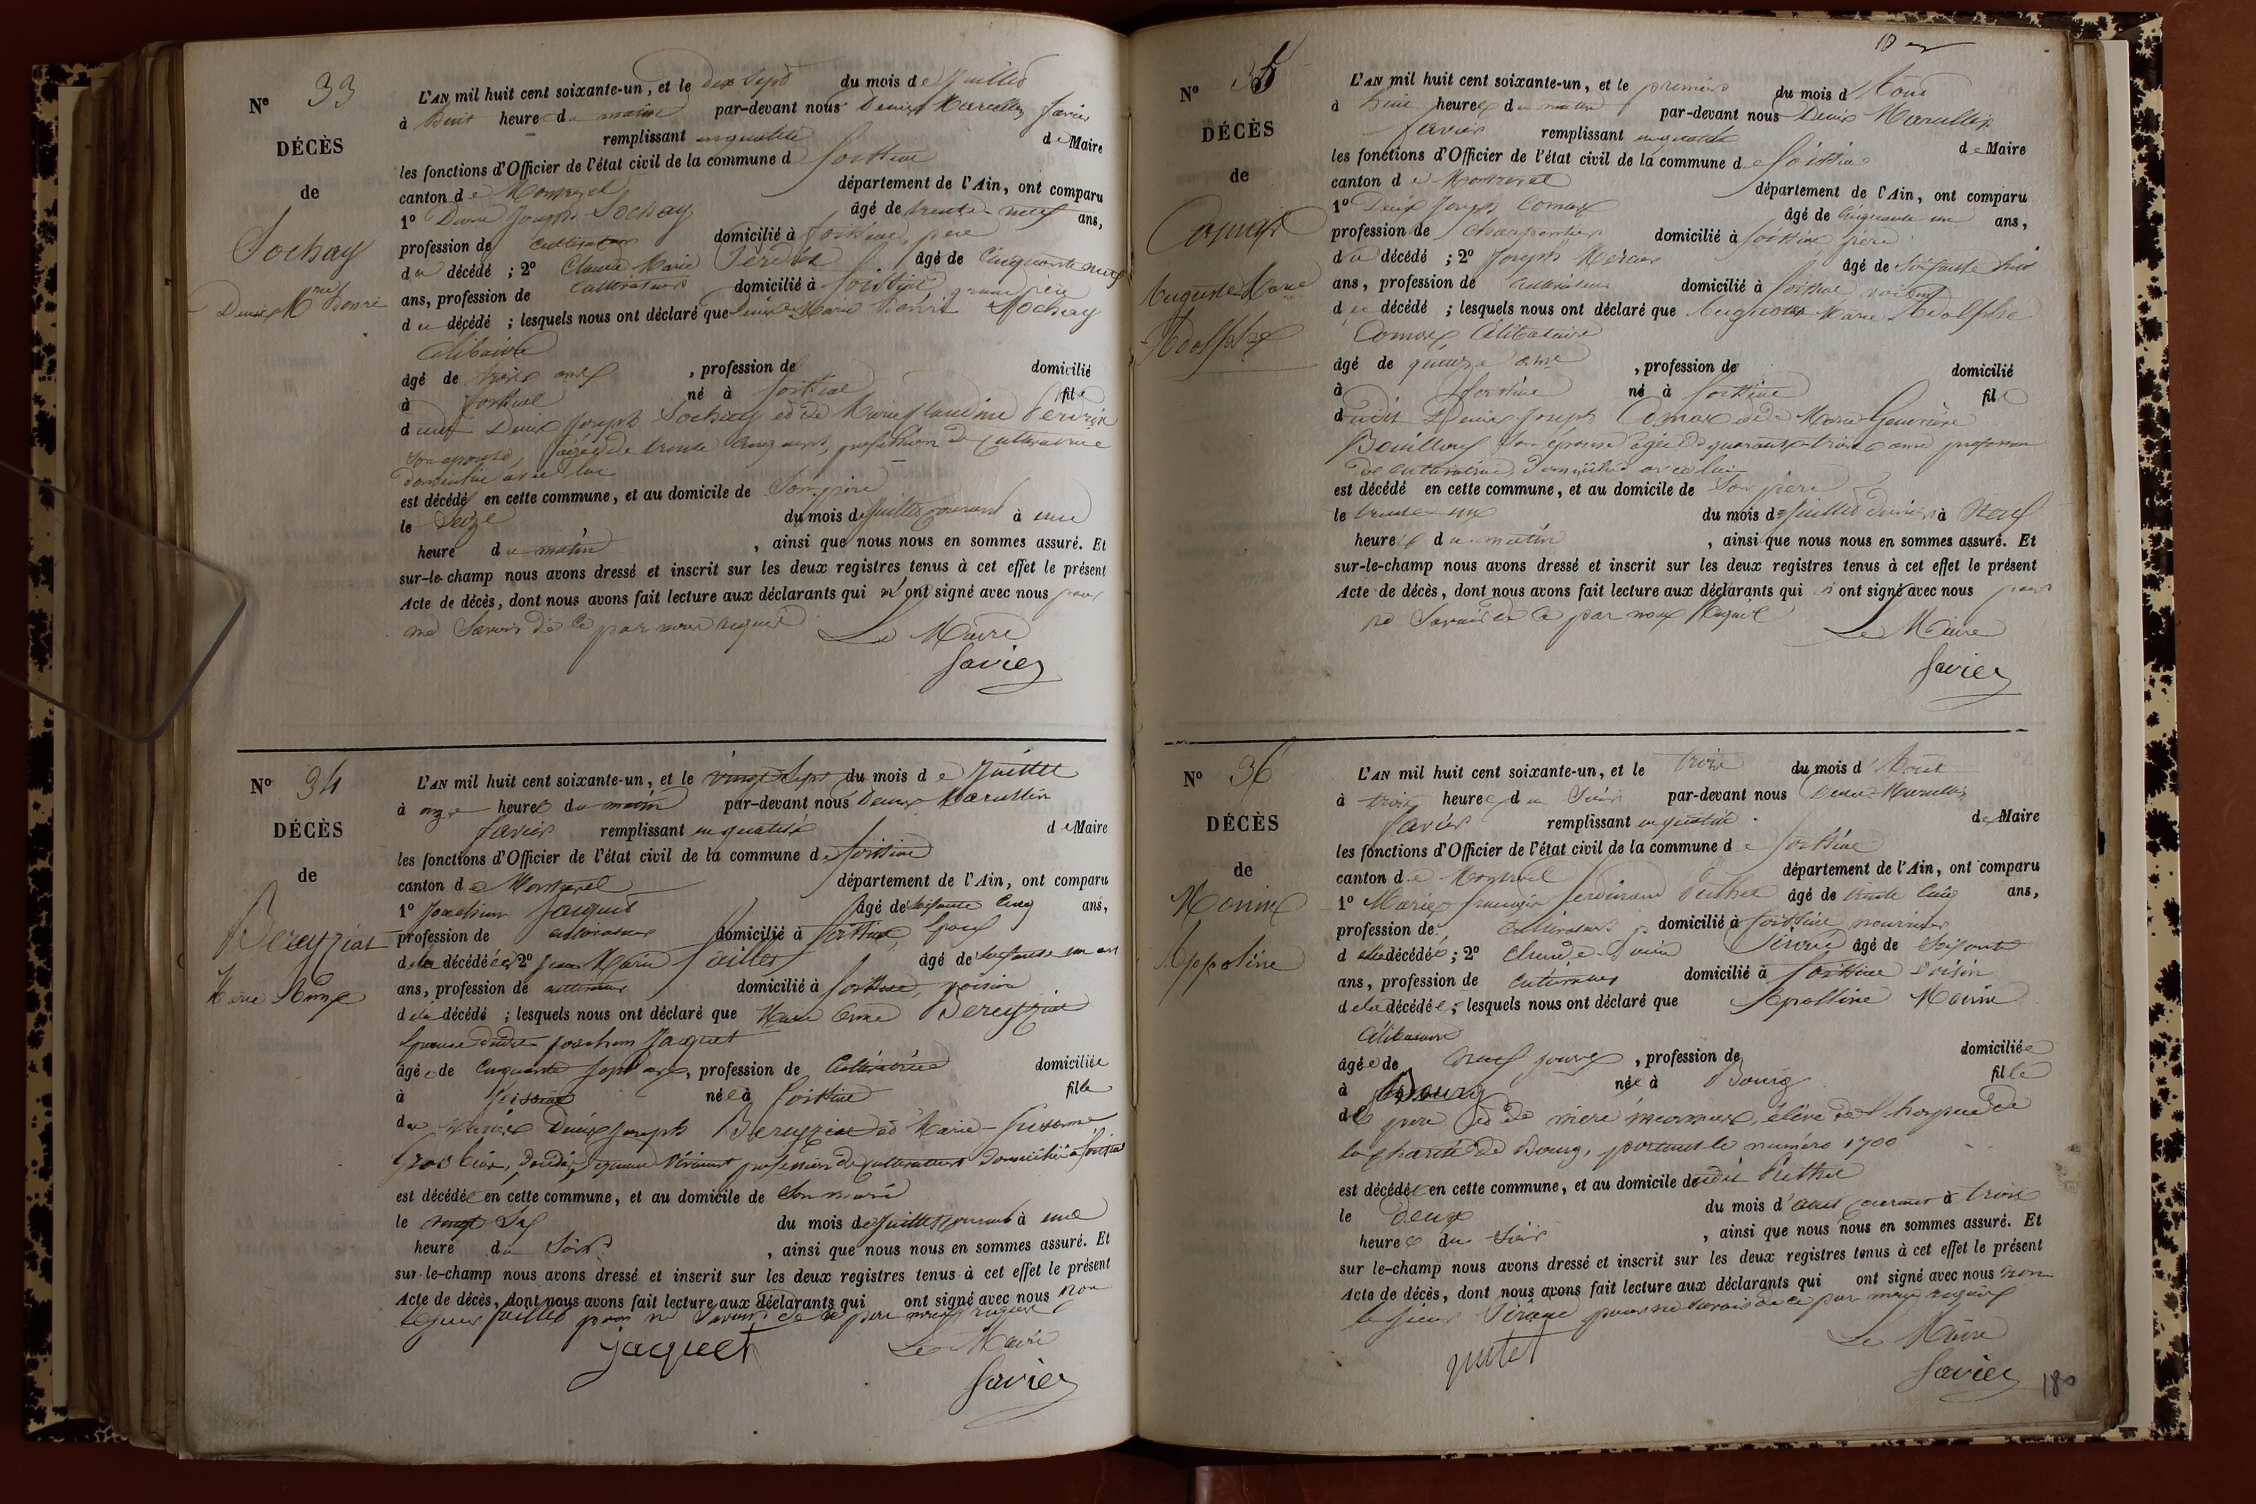 N° 33
DÉCÈS
de
Sochay
Denis Mrie Honré
L'AN mil huit cent soixante-un, et le dix Sept du mois de Juillet
à huit heure du matin par-devant nous Denis Marcellin Favier
remplissant en qualité de Maire
les fonctions d'Officier de l'état civil de la commune d
canton de Montrevel département de l'Ain, ont comparu
1° Denis Joseph Sochay âgé de trente-neuf ans,
profession de cultivateur domicilié à père
du décédé ; 2° Claude Marie âgé de Cinquante neuf
ans, profession de cultivateur domicilié à grand père
du décédé ; lesquels nous ont déclaré que Denis Marie Honré Sochay
Célibataire
âgé de trois ans , profession de domicilié
à né à fils
d Denis Joseph Sochay et de Marie Claudine
son épouse, âgée de trente cinq ans, profession de cultivatrice
domiciliée avec lui
est décédé en cette commune, et au domicile de Son père
le Seize du mois de Juillet courant à une
heure du matin , ainsi que nous nous en sommes assuré. Et
sur-le-champ nous avons dressé et inscrit sur les deux registres tenus à cet effet le présent
Acte de décès, dont nous avons fait lecture aux déclarants qui n'ont signé avec nous pour
ne Savoir de ce par nous requis
Le Maire
Favier
N° 34
DÉCÈS
de
Bereyziat
Marie Anne
L'AN mil huit cent soixante-un, et le vingt Sept du mois de Juillet
à onze heures du matin par-devant nous Denis Marcellin
Favier remplissant en qualité de Maire
les fonctions d'Officier de l'état civil de la commune de
canton de Montrevel département de l'Ain, ont comparu
1° Joachim Jacquet âgé de soixante Cinq ans,
profession de cultivateur domicilié à époux
de la décédée ; 2° Jean Marie âgé de soixante un an
ans, profession de cultivateur domicilié à voisin
de la décédé ; lesquels nous ont déclaré que Marie Anne Bereyziat
Épouse dudit Joachim Jacquet
âgée de Cinquante Sept ans, profession de Cultivatrice domiciliée
à née à fille
de Denis Joseph Bereyziat et de Marie-Suzanne
profession de cultivateurs domiciliés à
est décédée en cette commune, et au domicile de Son mari
le vingt Six du mois de Juillet courant à une
heure du Soir , ainsi que nous nous en sommes assuré. Et
sur-le-champ nous avons dressé et inscrit sur les deux registres tenus à cet effet le présent
Acte de décès, dont nous avons fait lecture aux déclarants qui ont signé avec nous non
pour ne Savoir de ce par nous requis
jaquet Le Maire
Favier
N° 35
DÉCÈS
de
Comax
Auguste Marie
Adolphe
L'AN mil huit cent soixante-un, et le premier du mois d'Août
à heures du matin par-devant nous Denis Marcellin
Favier remplissant en qualité de Maire
les fonctions d'Officier de l'état civil de la commune de
canton de Montrevel département de l'Ain, ont comparu
1° Denis Joseph Comax âgé de Cinquante un ans,
profession de Charpentier domicilié à père
du décédé ; 2° Joseph Mercier âgé de soixante huit
ans, profession de cultivateur domicilié à voisin
du décédé ; lesquels nous ont déclaré que Auguste Marie Adolphe
Comax Célibataire
âgé de quinze ans , profession de domicilié
à né à fils
dudit Denis Joseph Comax et de Marie
son épouse âgée de quarante trois ans profession
de cultivatrice, domiciliée avec lui
est décédé en cette commune, et au domicile de Son père
le trente-un du mois de Juillet dernier à Neuf
heures du matin , ainsi que nous nous en sommes assuré. Et
sur-le-champ nous avons dressé et inscrit sur les deux registres tenus à cet effet le présent
Acte de décès, dont nous avons fait lecture aux déclarants qui n'ont signé avec nous pour
ne Savoir de ce par nous Requis
Le Maire
Favier
N° 36
DÉCÈS
de
Monine
Appoline
L'AN mil huit cent soixante-un, et le trois du mois d'Août
à trois heures du Soir par-devant nous Denis-Marcellin
Favier remplissant en qualité de Maire
les fonctions d'Officier de l'état civil de la commune de
canton de Montrevel département de l'Ain, ont comparu
1° Marie François Ferdinand âgé de trente Cinq ans,
profession de cultivateur domicilié à nourricier
de la décédée ; 2° Claude âgé de Soixante
ans, profession de cultivateur domicilié à voisin
de la décédée ; lesquels nous ont déclaré que Apolline Monine
Célibataire
âgée de neuf jours , profession de domiciliée
à Bourg née à Bourg fille
de père et de mère inconnus, élève de l'hospice de
la Charité de Bourg, portant le numéro 1700
est décédée en cette commune, et au domicile dudit
le deux du mois d'août courant à trois
heures du Soir , ainsi que nous nous en sommes assuré. Et
sur le-champ nous avons dressé et inscrit sur les deux registres tenus à cet effet le présent
Acte de décès, dont nous avons fait lecture aux déclarants qui ont signé avec nous non
le Sieur pour ne savoir de ce par nous requis
Le Maire
Favier
180